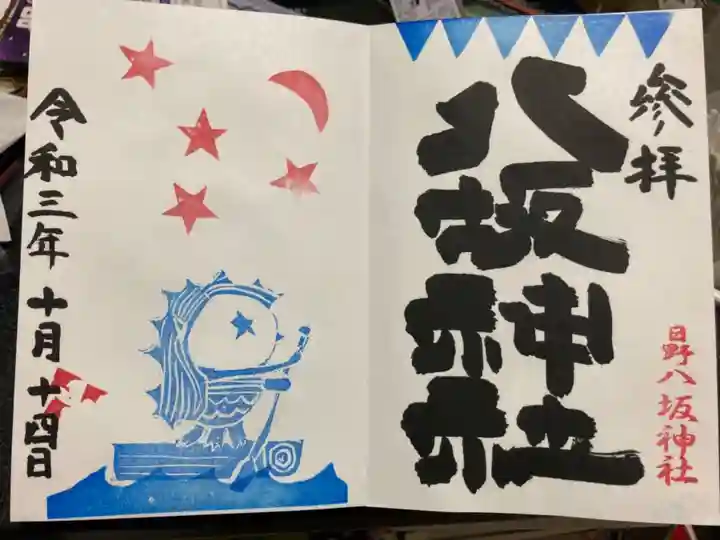 参拝
八坂神社
日野八坂神社
令和三年十月十四日